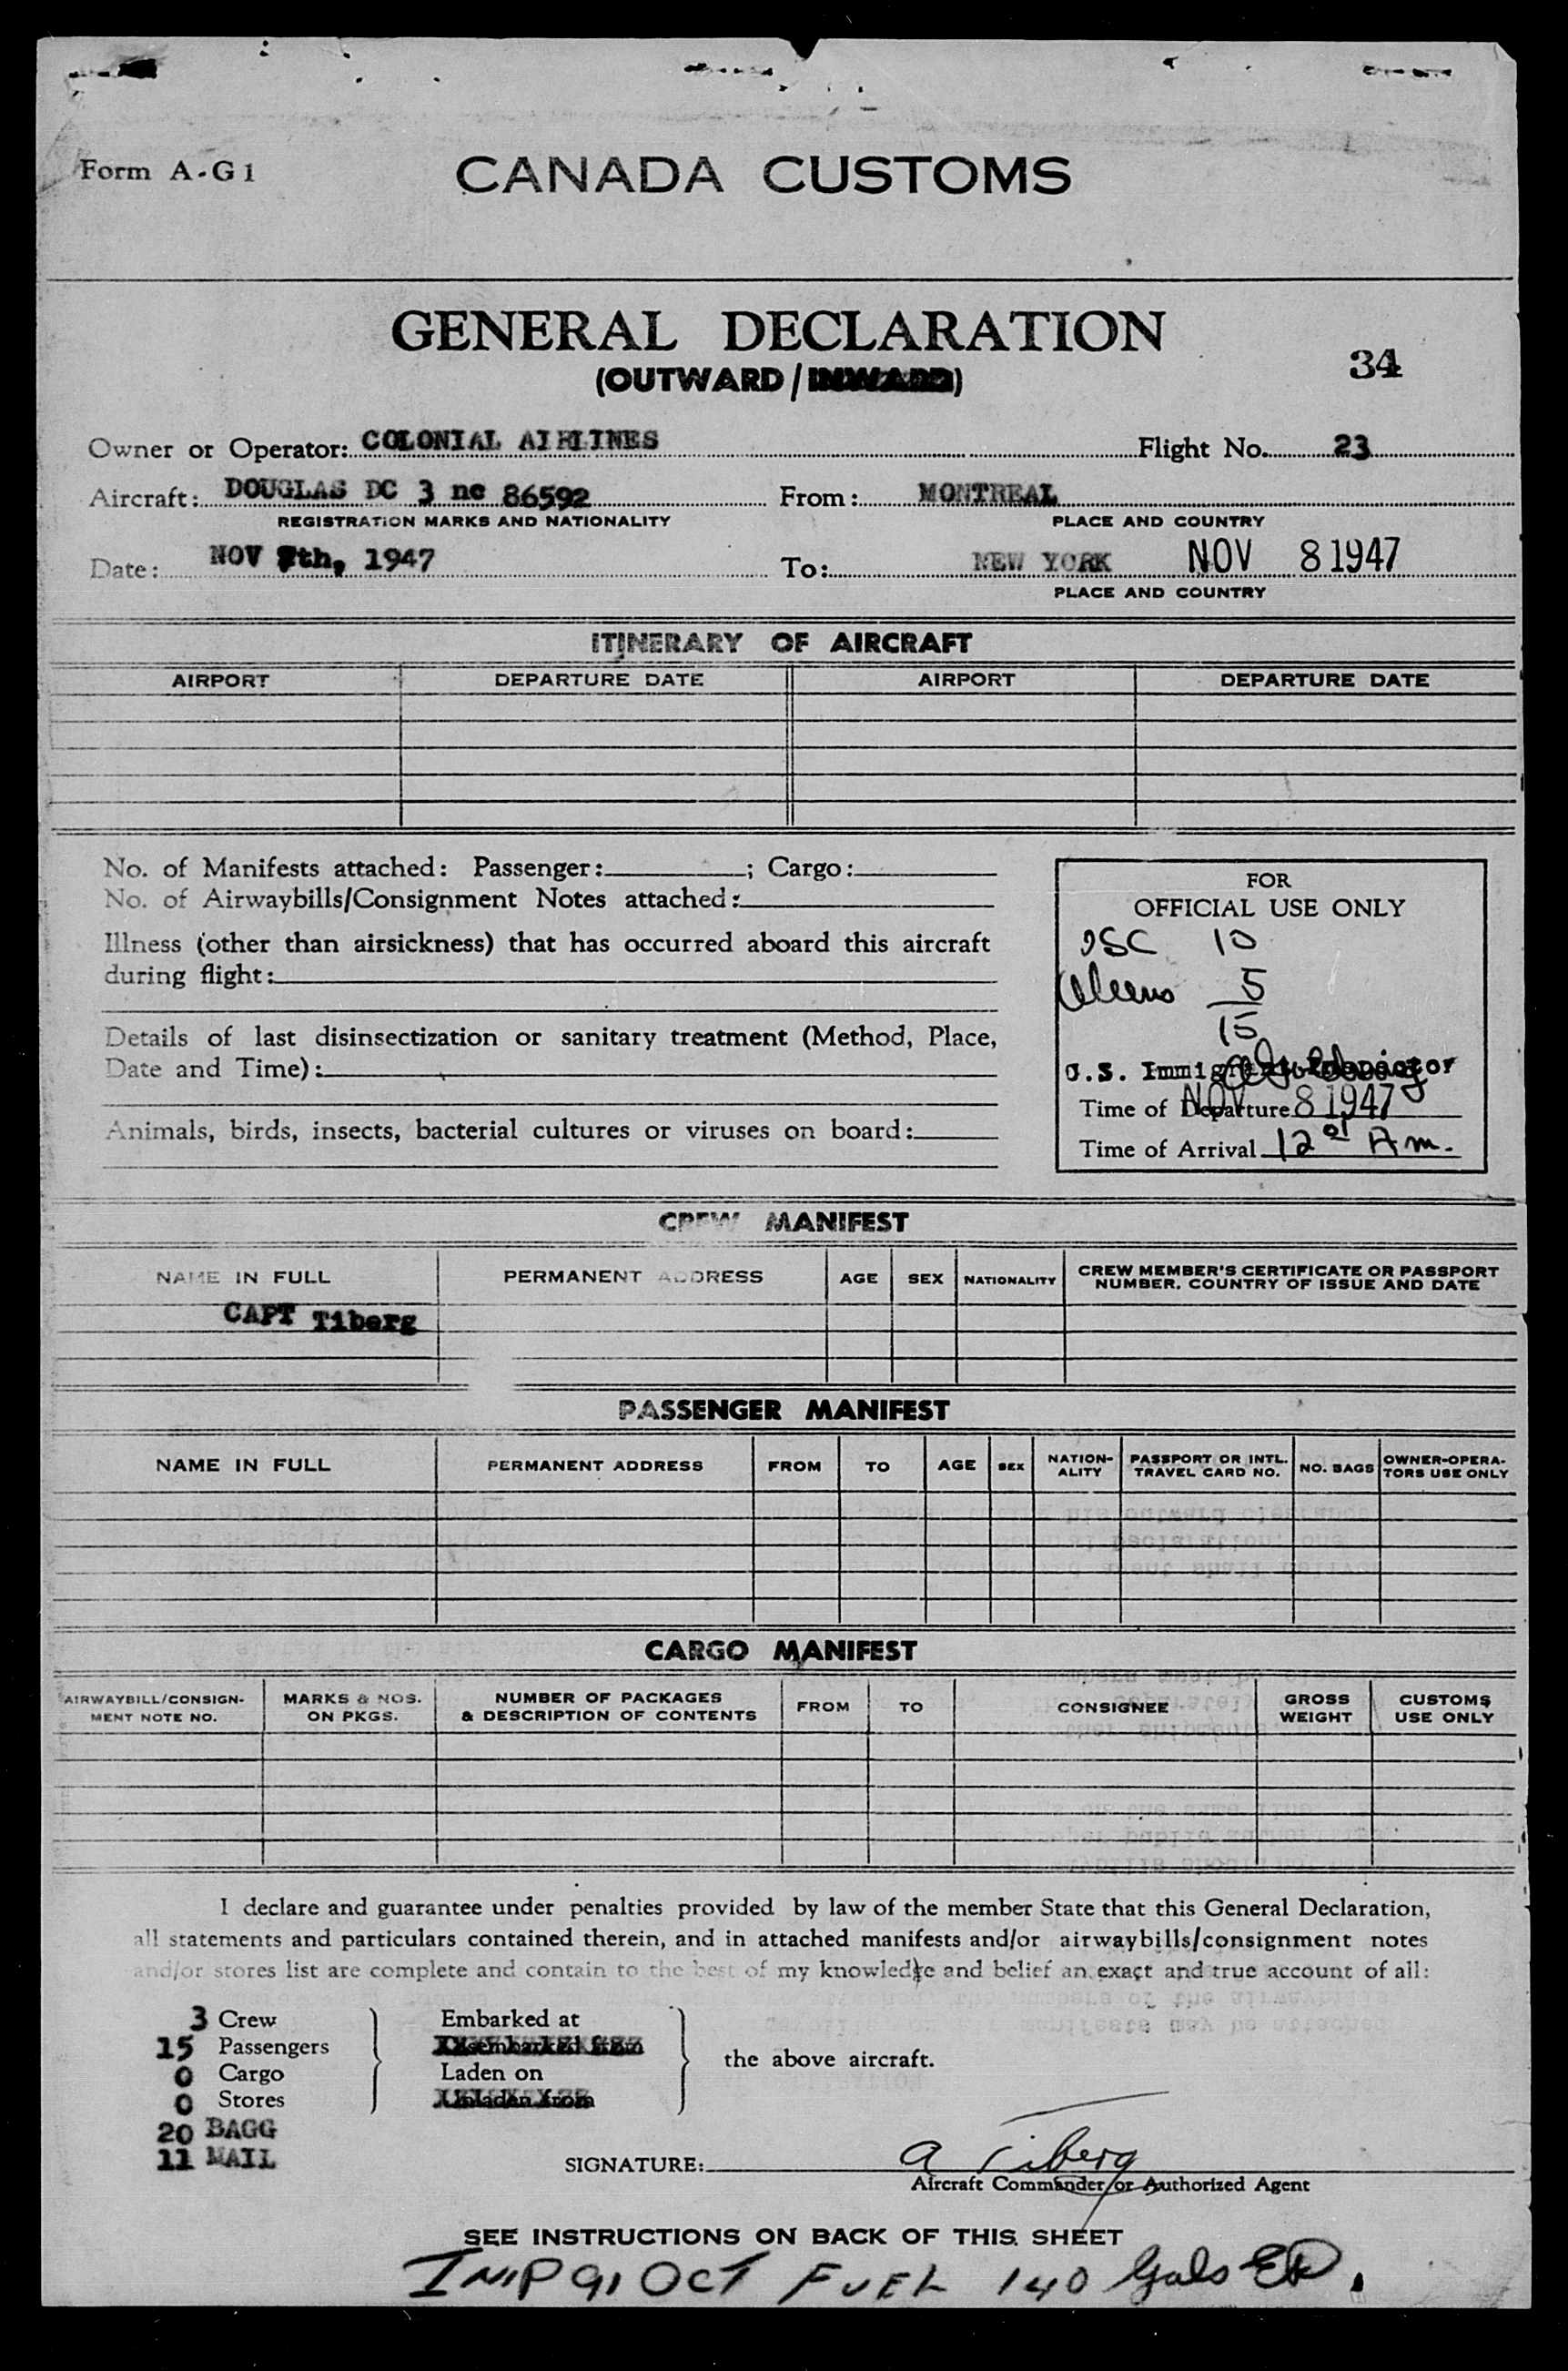 Form A-G1
CANADA CUSTOMS
GENERAL DECLARATION
(OUTWARD/INWARD)
34
Owner or Operator: COLONIAL AIRLINES Flight No. 23
Aircraft: DOUGLAS DC 3 nc 86592 From: MONTREAL
REGISTRATION MARKS AND NATIONALITY PLACE AND COUNTRY
Date: NOV 7th, 1947 To: NEW YORK NOV 8 1947
PLACE AND COUNTRY
ITINERARY OF AIRCRAFT
AIRPORT DEPARTURE DATE AIRPORT DEPARTURE DATE
No. of Manifests attached: Passenger: ; Cargo:
No. of Airwaybills/Consignment Notes attached:
Illness (other than airsickness) that has occurred aboard this aircraft
during flight:
Details of last disinsectization or sanitary treatment (Method, Place,
Date and Time):
Animals, birds, insects, bacterial cultures or viruses on board:
FOR
OFFICIAL USE ONLY
USC 10
Aliens 5
15
U.S. Immigrant Inspector
Time of Departure NOV 8 1947
Time of Arrival 12 01 Am.
CREW MANIFEST
NAME IN FULL PERMANENT ADDRESS AGE SEX NATIONALITY CREW MEMBER'S CERTIFICATE OR PASSPORT
NUMBER, COUNTRY OF ISSUE AND DATE
CAPT Tiberg
PASSENGER MANIFEST
NAME IN FULL PERMANENT ADDRESS FROM TO AGE SEX NATION-
ALITY PASSPORT OR INTL.
TRAVEL CARD NO. NO. BAGS OWNER-OPERA-
TORS USE ONLY
CARGO MANIFEST
AIRWAYBILL/CONSIGN-
MENT NOTE NO. MARKS & NOS.
ON PKGS. NUMBER OF PACKAGES
& DESCRIPTION OF CONTENTS FROM TO CONSIGNEE GROSS
WEIGHT CUSTOMS
USE ONLY
I declare and guarantee under penalties provided by law of the member State that this General Declaration,
all statements and particulars contained therein, and in attached manifests and/or airwaybills/consignment notes
and/or stores list are complete and contain to the best of my knowledge and belief an exact and true account of all:
3 Crew
15 Passengers
0 Cargo
0 Stores
20 BAGG
11 MAIL
Embarked at
Disembarked from
Laden on
Unladen from
the above aircraft.
SIGNATURE: A Tiberg
Aircraft Commander or Authorized Agent
SEE INSTRUCTIONS ON BACK OF THIS SHEET
91 OCT FUEL 140 Gals